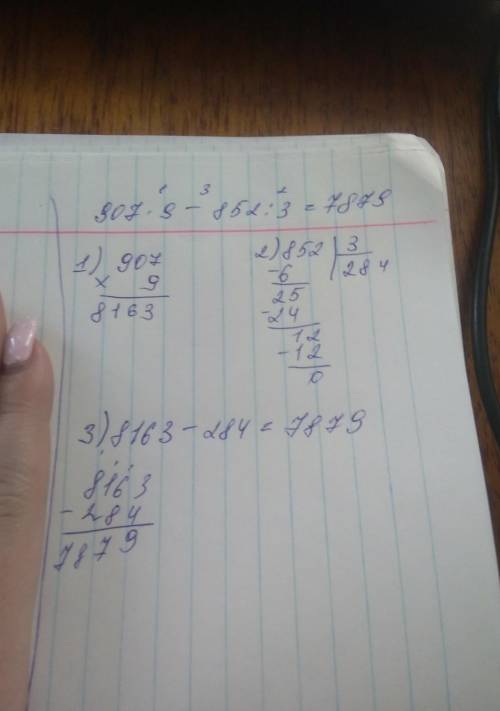 907 · 9 - 852 : 3 = 7879
1 3 2
1) 907
× 9
8163
2) 852 | 3
284
-6
25
-24
12
-12
0
3) 8163 - 284 = 7879
8163
- 284
7879